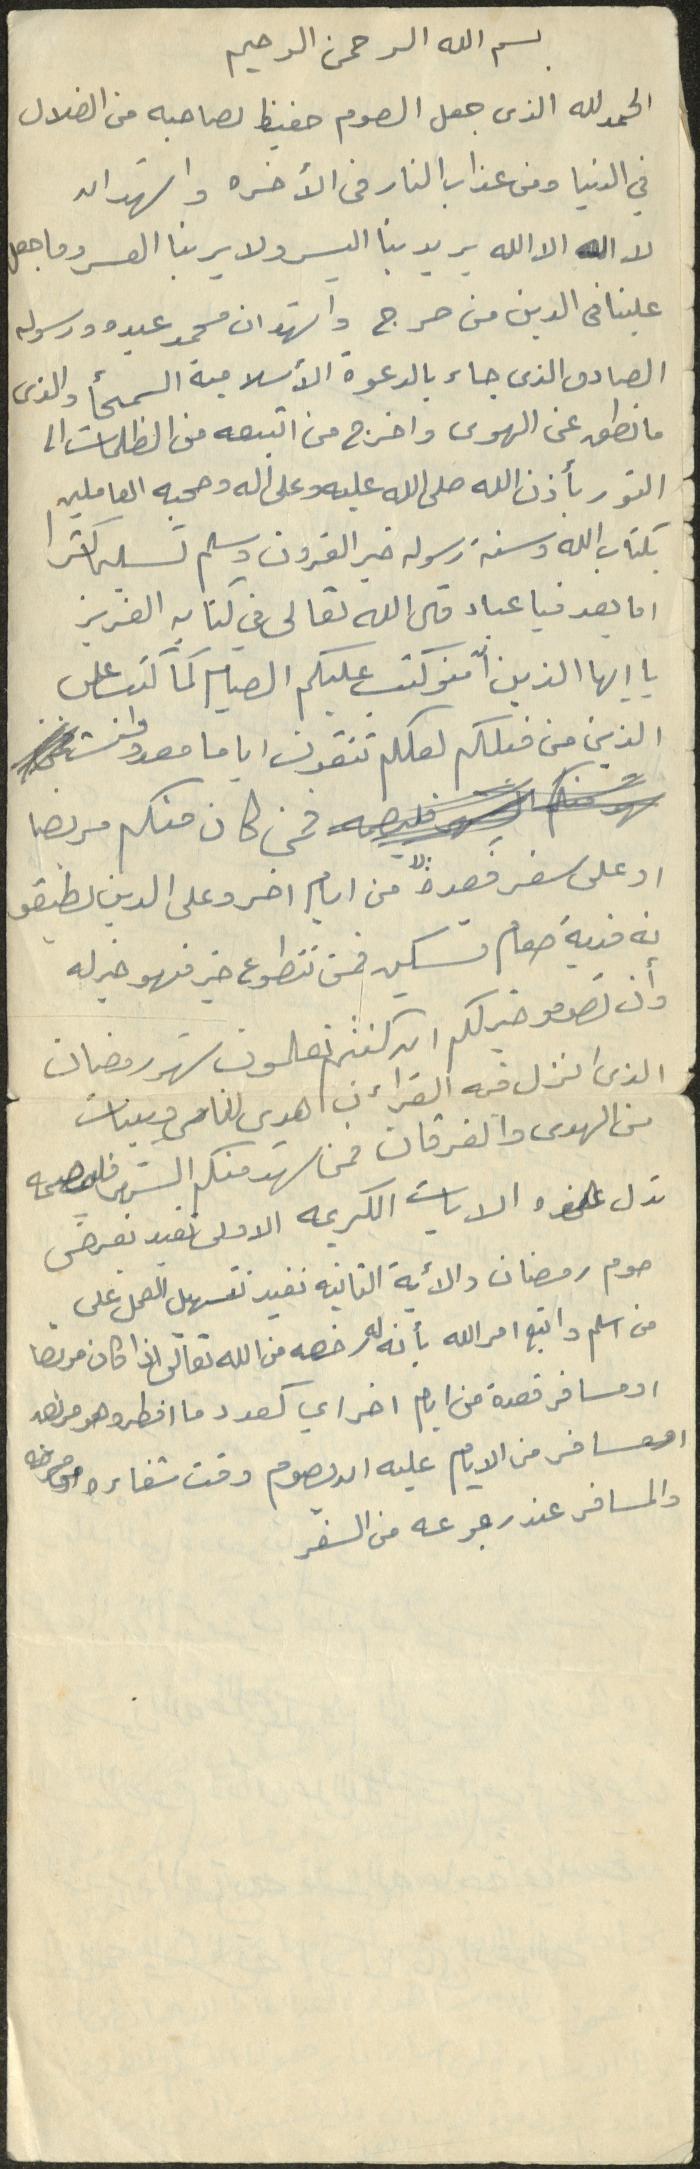 بسم الله الرحمن الرحيم
الحمد لله الذى جعل الصوم حفيظ لصاحبه من الضلال
في الدنيا ومن عذاب النار فى الأخره واشهد ان
لا اله الا الله يريد بنا اليسر ولا يريد بنا العسر وما جعل
علينا فى الدين من حرج واشهد ان محمد عبده ورسوله
الصادق الذى جاء بالدعوة الأسلامية السمحأ والذى
ما نطق عن الهوى واخرج من اتبعه من الظلمات الى
النور بأذن الله صلى الله عليه وعلى اله وصحبه العاملين
بكتاب الله وسنة رسوله خير القرون وسلم تسليم كثيرا
اما بعد فيا عباد قال الله تعالى في كتابه العزيز
يا ايها الذين آمنو كتب عليكم الصيام كما كتب على
الذين من قبلكم لعلكم تتقون اياما معدودات
فمن كان منكم مريضا
او على سفر فعدة من ايام اخر وعلى الذين يطيقو
نه فدية طعام مسكين فمن تتطوع خير فهو خير له
وأن تصومو خير لكم ان كنتم تعلمون شهر رمضان
الذى انزل فيه القراءن هدى للناس وبينات
من الهدى والفرقان فمن شهد منكم الشهر فليصمه
تدل هذه الايات الكريمه الاولى تفيد بفرضى
صوم رمضان والأية الثانيه تفيد تسهيل العمل على
من اسلم واتبع امر الله بأنه له رخصه من الله تعالى اذا كان مريضا
او مسافر فعدة من ايام اخر اي كعدد ما افطر وهو مريض
او مسافر من الايام عليه ان يصوم وقت شفاءه من مرضه
والمسافر عند رجوعه من السفر